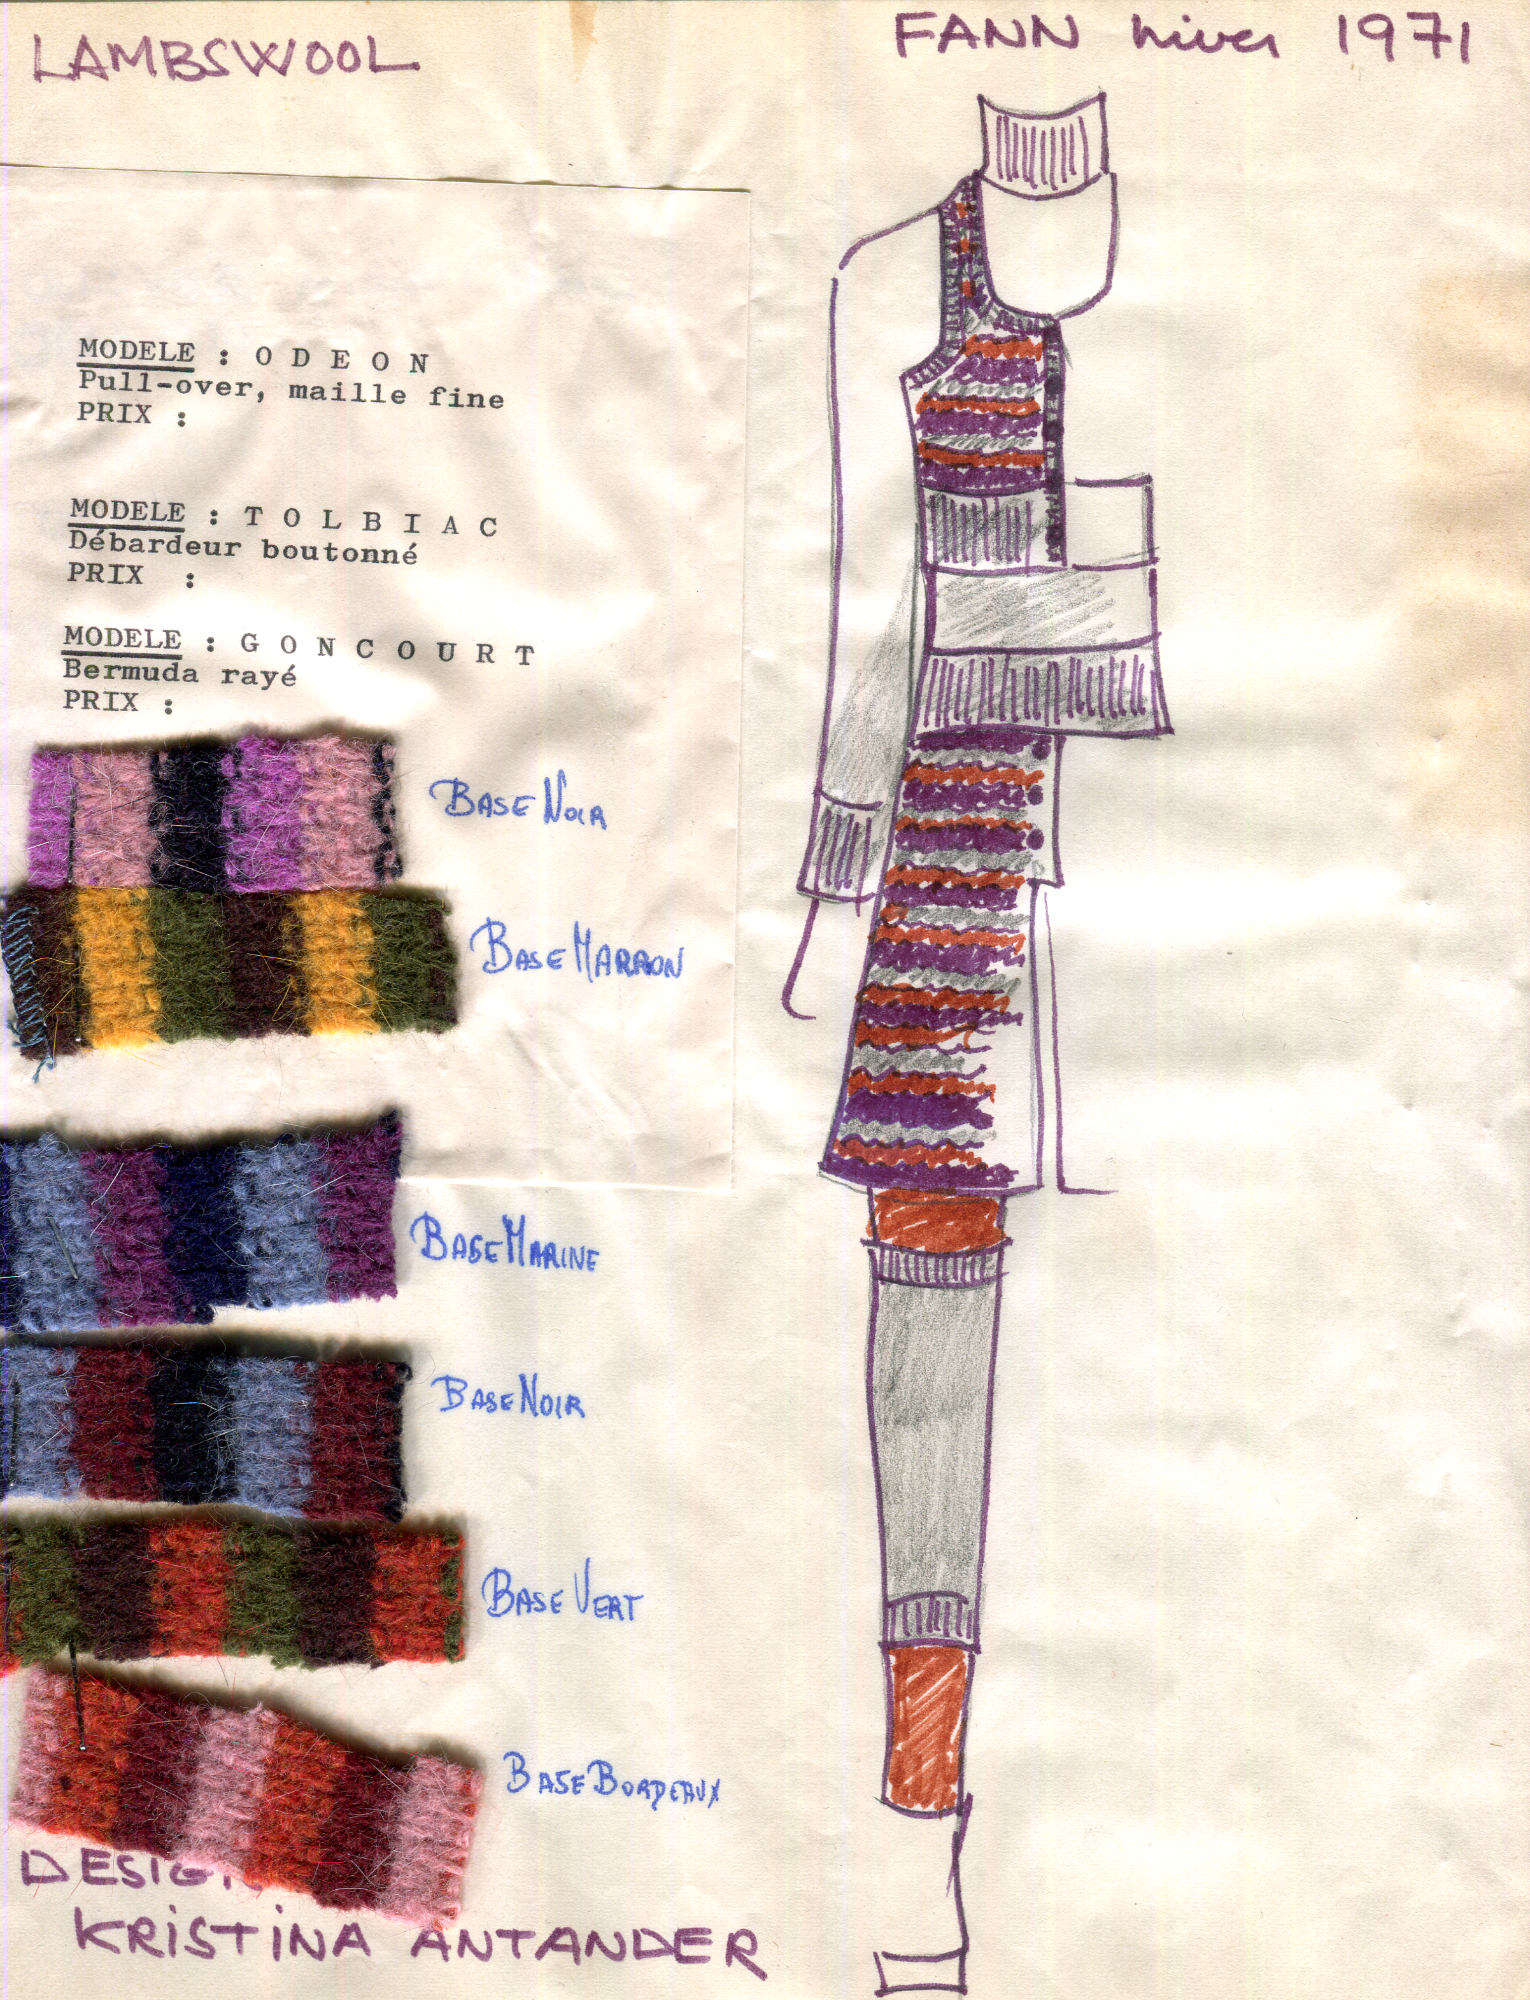 LAMBSWOOL
FANN hiver 1971
MODELE : O D E O N
Pull-over, maille fine
PRIX :
MODELE : T O L B I A C
Débardeur boutonné
PRIX :
MODELE : G O N C O U R T
Bermuda rayé
PRIX :
BASE NOIR
BASE MARRON
BASE MARINE
BASE NOIR
BASE VERT
BASE BORDEAUX
DESIG
KRISTINA ANTANDER